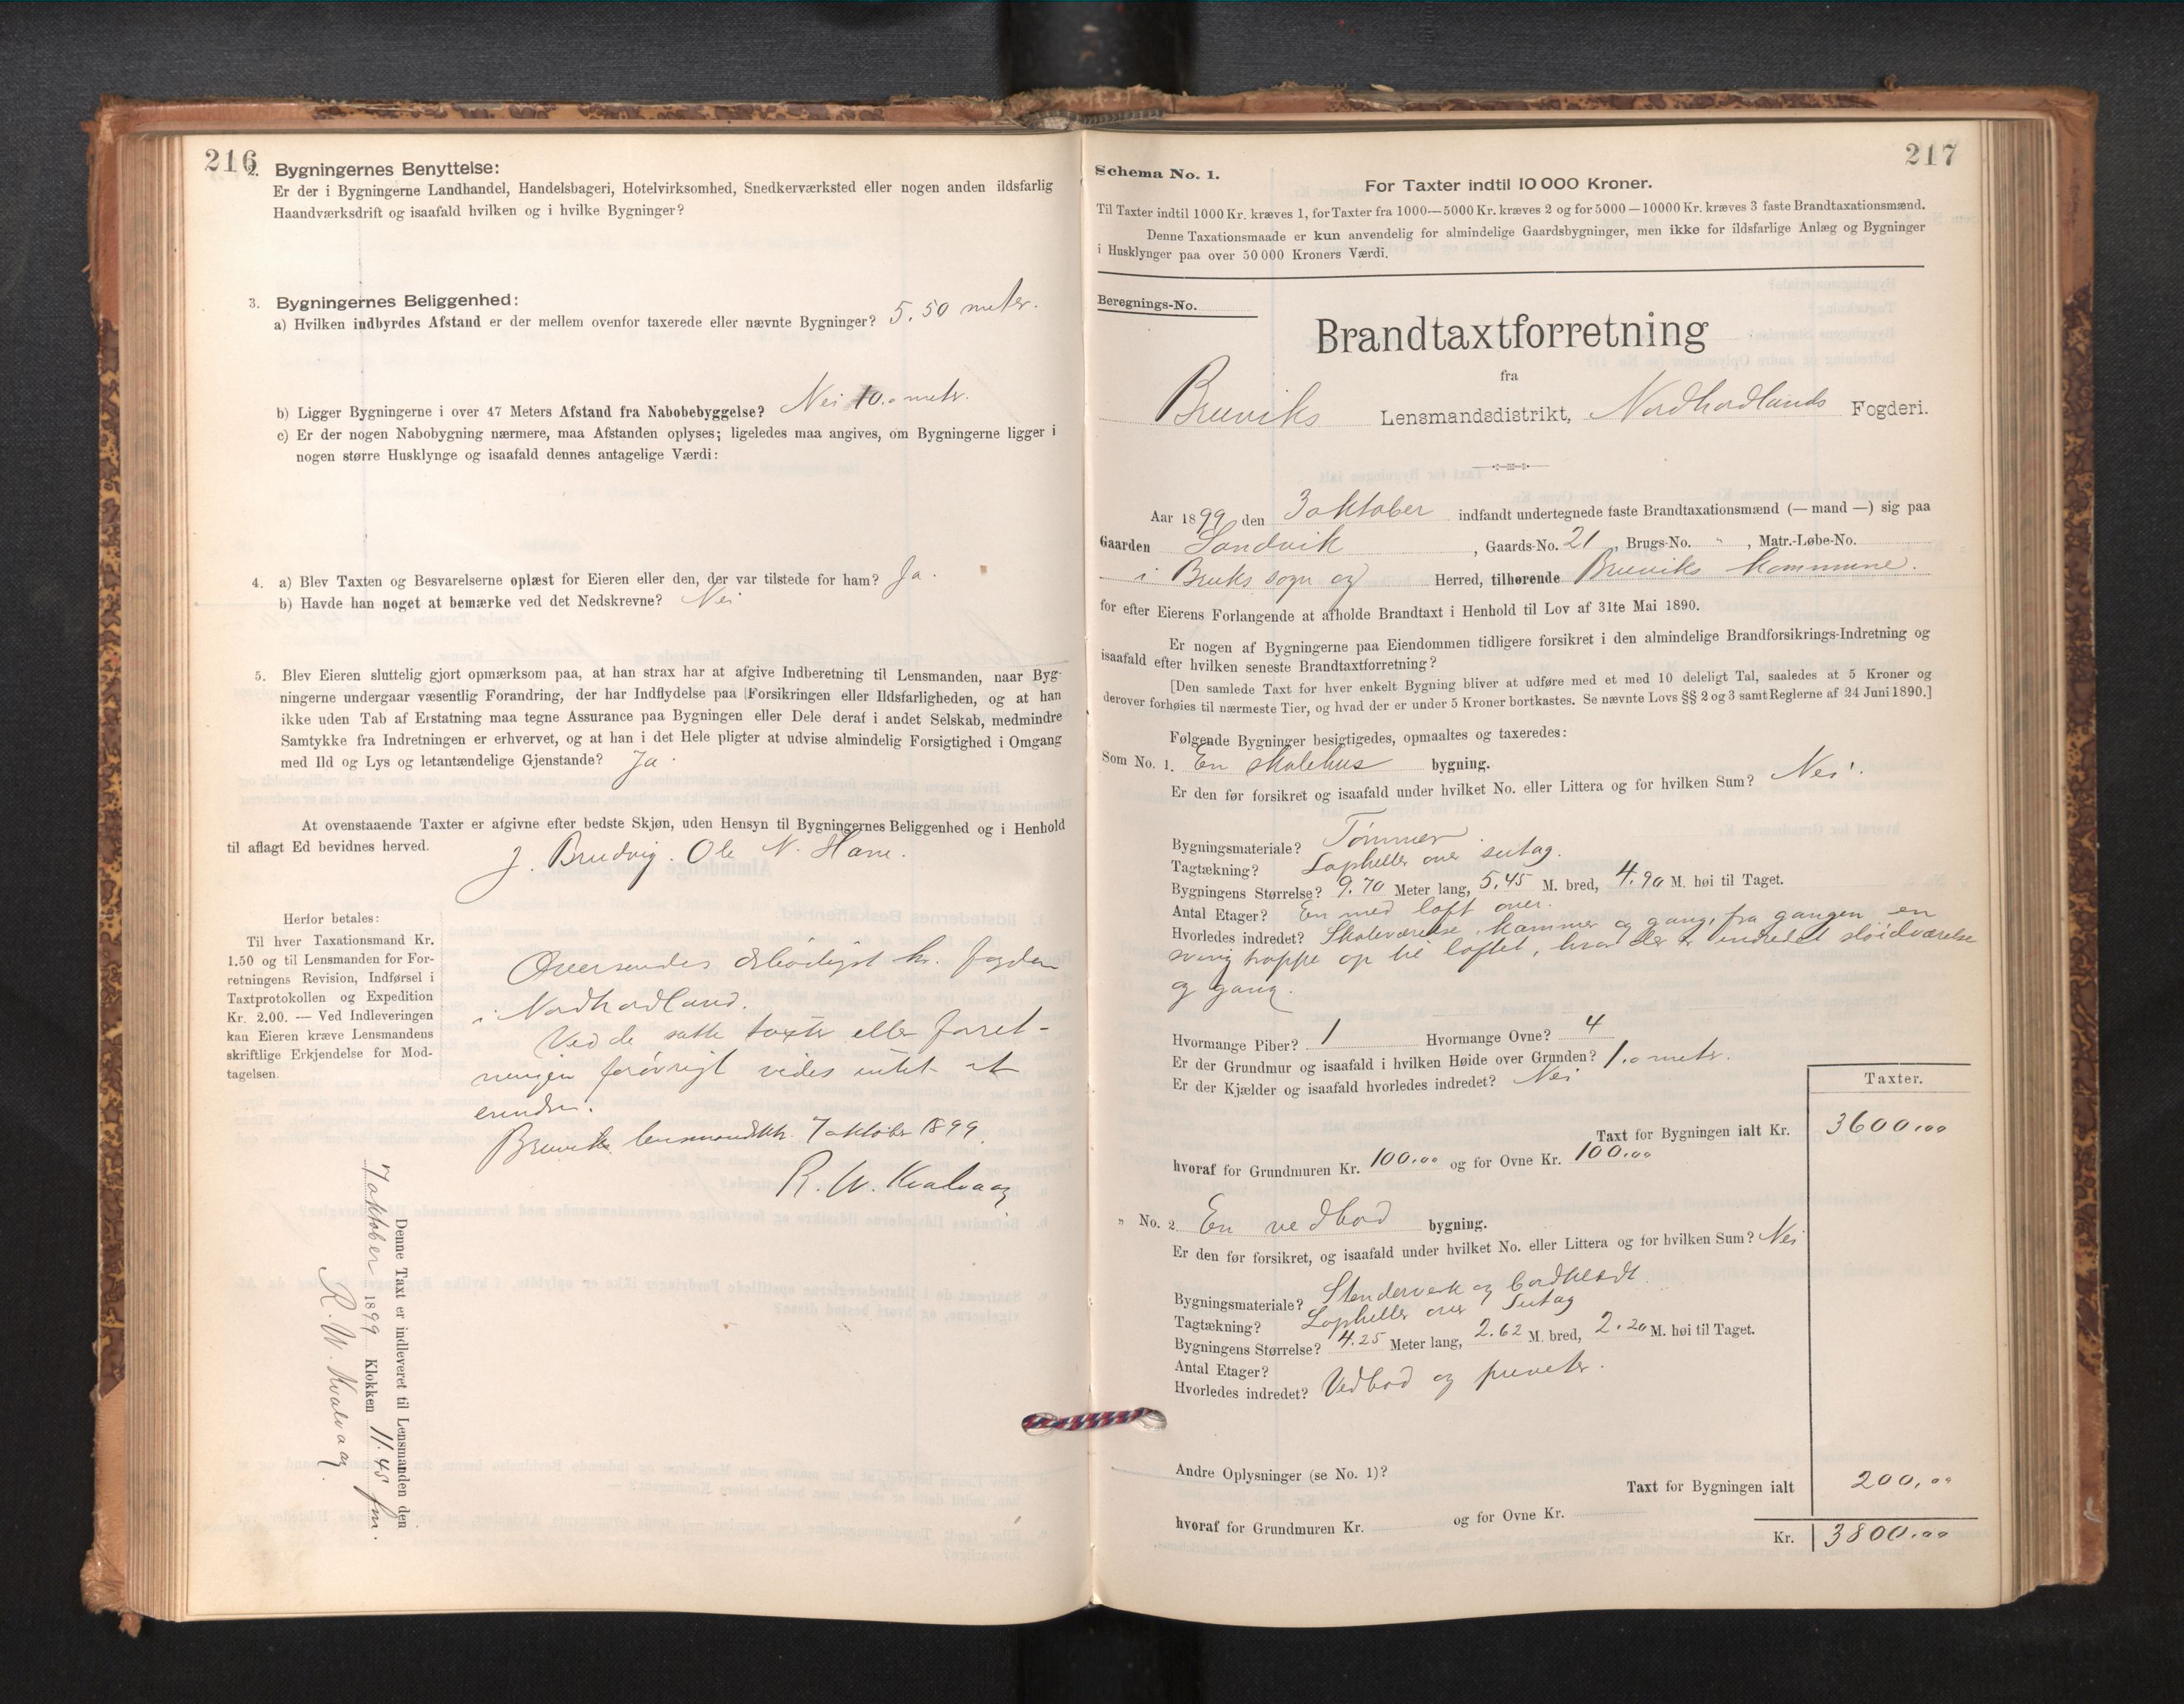 216
2. Bygningernes Benyttelse:
Er der i Bygningerne Landhandel, Handelsbageri, Hotelvirksomhed, Snedkerværksted eller nogen anden ildsfarlig
Haandværksdrift og isaafald hvilken og i hvilke Bygninger?
3. Bygningernes Beliggenhed:
a) Hvilken indbyrdes Afstand er der mellem ovenfor taxerede eller nævnte Bygninger? 5.50 meter.
b) Ligger Bygningerne i over 47 Meters Afstand fra Nabobebyggelse? Nei 10.0 metr.
c) Er der nogen Nabobygning nærmere, maa Afstanden oplyses; ligeledes maa angives, om Bygningerne ligger i
nogen større Husklynge og isaafald dennes antagelige Værdi:
4. a) Blev Taxten og Besvarelserne oplæst for Eieren eller den, der var tilstede for ham? Ja.
b) Havde han noget at bemærke ved det Nedskrevne? Nei
5. Blev Eieren sluttelig gjort opmærksom paa, at han strax har at afgive Indberetning til Lensmanden, naar Byg-
ningerne undergaar væsentlig Forandring, der har Indflydelse paa Forsikringen eller Ildsfarligheden, og at han
ikke uden Tab af Erstatning maa tegne Assurance paa Bygningen eller Dele deraf i andet Selskab, medmindre
Samtykke fra Indretningen er erhvervet, og at han i det Hele pligter at udvise almindelig Forsigtighed i Omgang
med Ild og Lys og letantændelige Gjenstande? Ja.
At ovenstaaende Taxter er afgivne efter bedste Skjøn, uden Hensyn til Bygningernes Beliggenhed og i Henhold
til aflagt Ed bevidnes herved.
J. Brudvig. Ole N. Hane.
Herfor betales:
Til hver Taxationsmand Kr.
1.50 og til Lensmanden for For-
retningens Revision, Indførsel i
Taxtprotokollen og Expedition
Kr. 2.00. — Ved Indleveringen
kan Eieren kræve Lensmandens
skriftlige Erkjendelse for Mod-
tagelsen.
Oversendes ærbødigst hr. fogden
i Nordhordland.
Ved de satte taxter eller forret-
ningen forøvrigt vides intet at
erindre.
Bruvik lensmandsktr. 7 oktober 1899.
R. W. Kvalvaag
Denne Taxt er indleveret til Lensmanden den
7 oktober 1899 Klokken 11.45 fm.
R. W. Kvalvaag.
217
Schema No. 1.
For Taxter indtil 10 000 Kroner.
Til Taxter indtil 1000 Kr. kræves 1, for Taxter fra 1000—5000 Kr. kræves 2 og for 5000—10000 Kr. kræves 3 faste Brandtaxationsmænd.
Denne Taxationsmaade er kun anvendelig for almindelige Gaardsbygninger, men ikke for ildsfarlige Anlæg og Bygninger
i Husklynger paa over 50 000 Kroners Værdi.
Beregnings-No.
Brandtaxtforretning
fra
Bruviks Lensmandsdistrikt, Nordhordlands Fogderi.
Aar 1899 den 3 oktober indfandt undertegnede faste Brandtaxationsmænd (— mand —) sig paa
Gaarden Sandvik, Gaards-No. 21, Brugs-No. ", Matr.-Løbe-No.
i Bruks sogn og Herred, tilhørende Bruviks kommune.
for efter Eierens Forlangende at afholde Brandtaxt i Henhold til Lov af 31te Mai 1890.
Er nogen af Bygningerne paa Eiendommen tidligere forsikret i den almindelige Brandforsikrings-Indretning og
isaafald efter hvilken seneste Brandtaxtforretning?
[Den samlede Taxt for hver enkelt Bygning bliver at udføre med et med 10 deleligt Tal, saaledes at 5 Kroner og
derover forhøies til nærmeste Tier, og hvad der er under 5 Kroner bortkastes. Se nævnte Lovs §§ 2 og 3 samt Reglerne af 24 Juni 1890.]
Følgende Bygninger besigtigedes, opmaaltes og taxeredes:
Som No. 1. En skolehus bygning.
Er den før forsikret og isaafald under hvilket No. eller Littera og for hvilken Sum? Nei.
Bygningsmateriale? Tømmer
Tagtækning? Lapheller over sutag.
Bygningens Størrelse? 9.70 Meter lang, 5.45 M. bred, 4.90 M. høi til Taget.
Antal Etager? En med loft over.
Hvorledes indredet? Skoleværelse, kammer og gang, fra gangen en
sving trappe op til loftet, hvor der er indredet sløidværelse
og gang.
Hvormange Piber? 1 Hvormange Ovne? 4
Er der Grundmur og isaafald i hvilken Høide over Grunden? 1.0 metr.
Er der Kjælder og isaafald hvorledes indredet? Nei
Taxter.
Taxt for Bygningen ialt Kr. 3600.00
hvoraf for Grundmuren Kr. 100.00 og for Ovne Kr. 100.00
" No. 2 En vedbod bygning.
Er den før forsikret, og isaafald under hvilket No. eller Littera og for hvilken Sum? Nei
Bygningsmateriale? Stenderverk og bordklædt.
Tagtækning? Lapheller over Sutag
Bygningens Størrelse? 4.25 Meter lang, 2.62 M. bred, 2.20 M. høi til Taget.
Antal Etager?
Hvorledes indredet? Vedbod og priveter.
Andre Oplysninger (se No. 1)?
Taxt for Bygningen ialt 200.00
hvoraf for Grundmuren Kr. og for Ovne Kr.
Kr. 3800.00